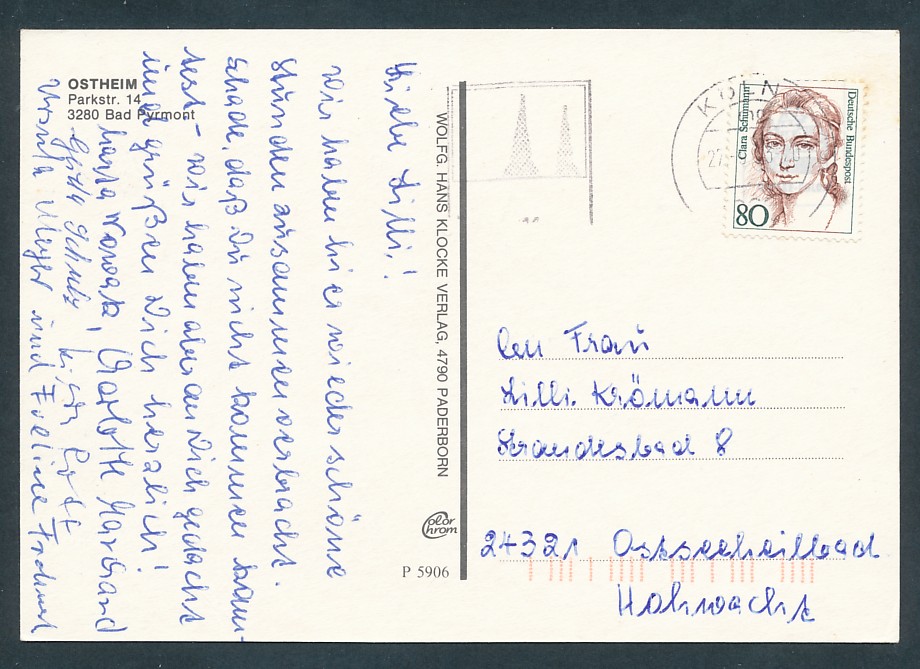 OSTHEIM
Parkstr. 14
3280 Bad Pyrmont
Liebe Lilli!
Wir haben hier wieder schöne
Stunden zusammen verbracht.
Schade, daß Du nicht kommen konn-
test - wir haben aber an Dich gedacht
und grüßen Dich herzlich!
Charlotte
und Eveline
WOLFG. HANS KLOCKE VERLAG, 4790 PADERBORN
Color
chrom
P 5906
KÖLN
27
Deutsche Bundespost
Clara Schumann
80
Frau
Lilli Krömann
Strandesbad 8
24321 Ostseeheilbad
Hohwacht